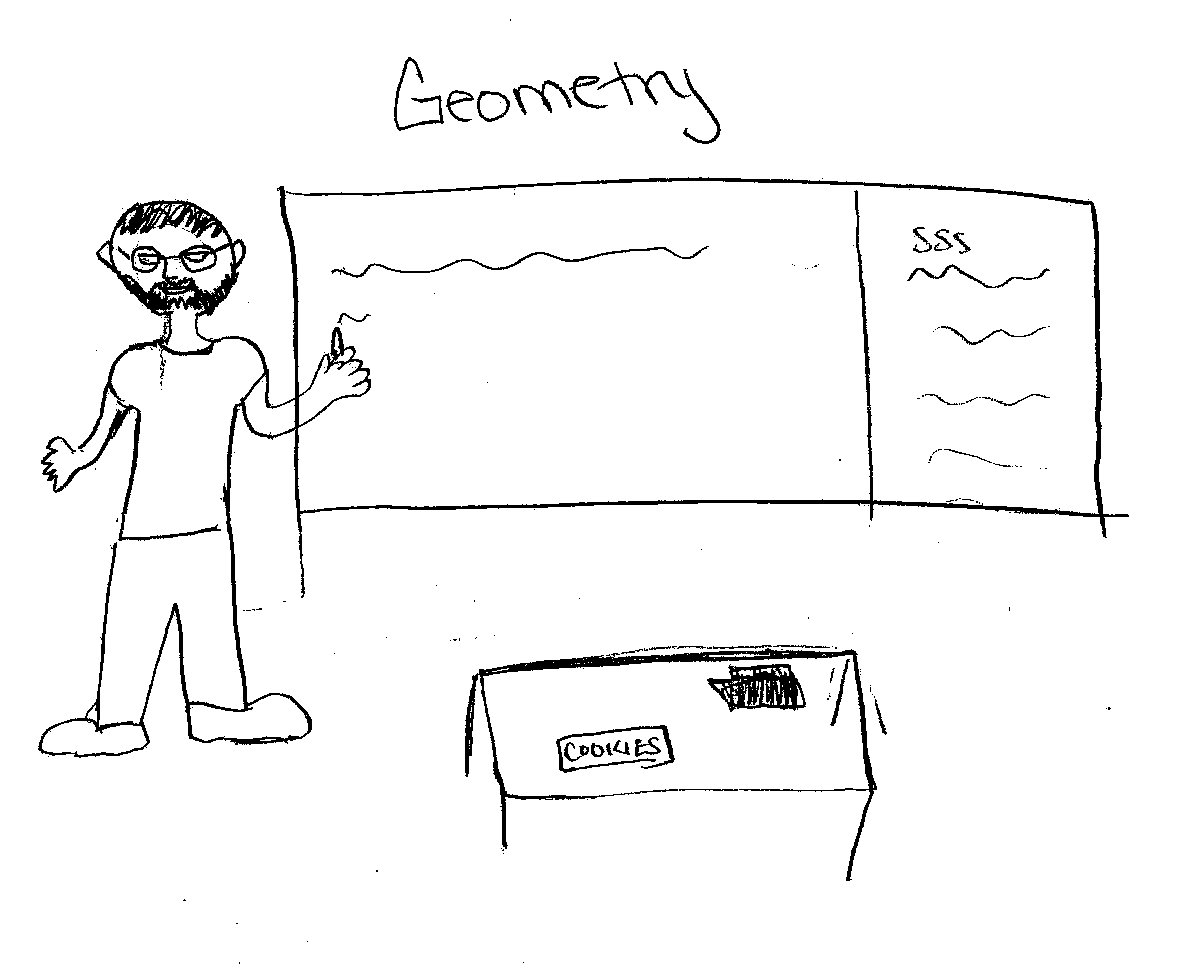 Geometry
SSS
COOKIES